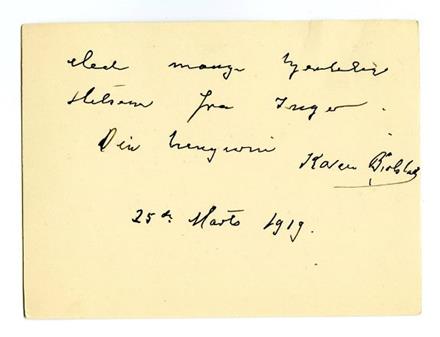 Med mange hjertelig
Hilsen fra Inger.
Din hengivne
Karen
25de Marts 1919.